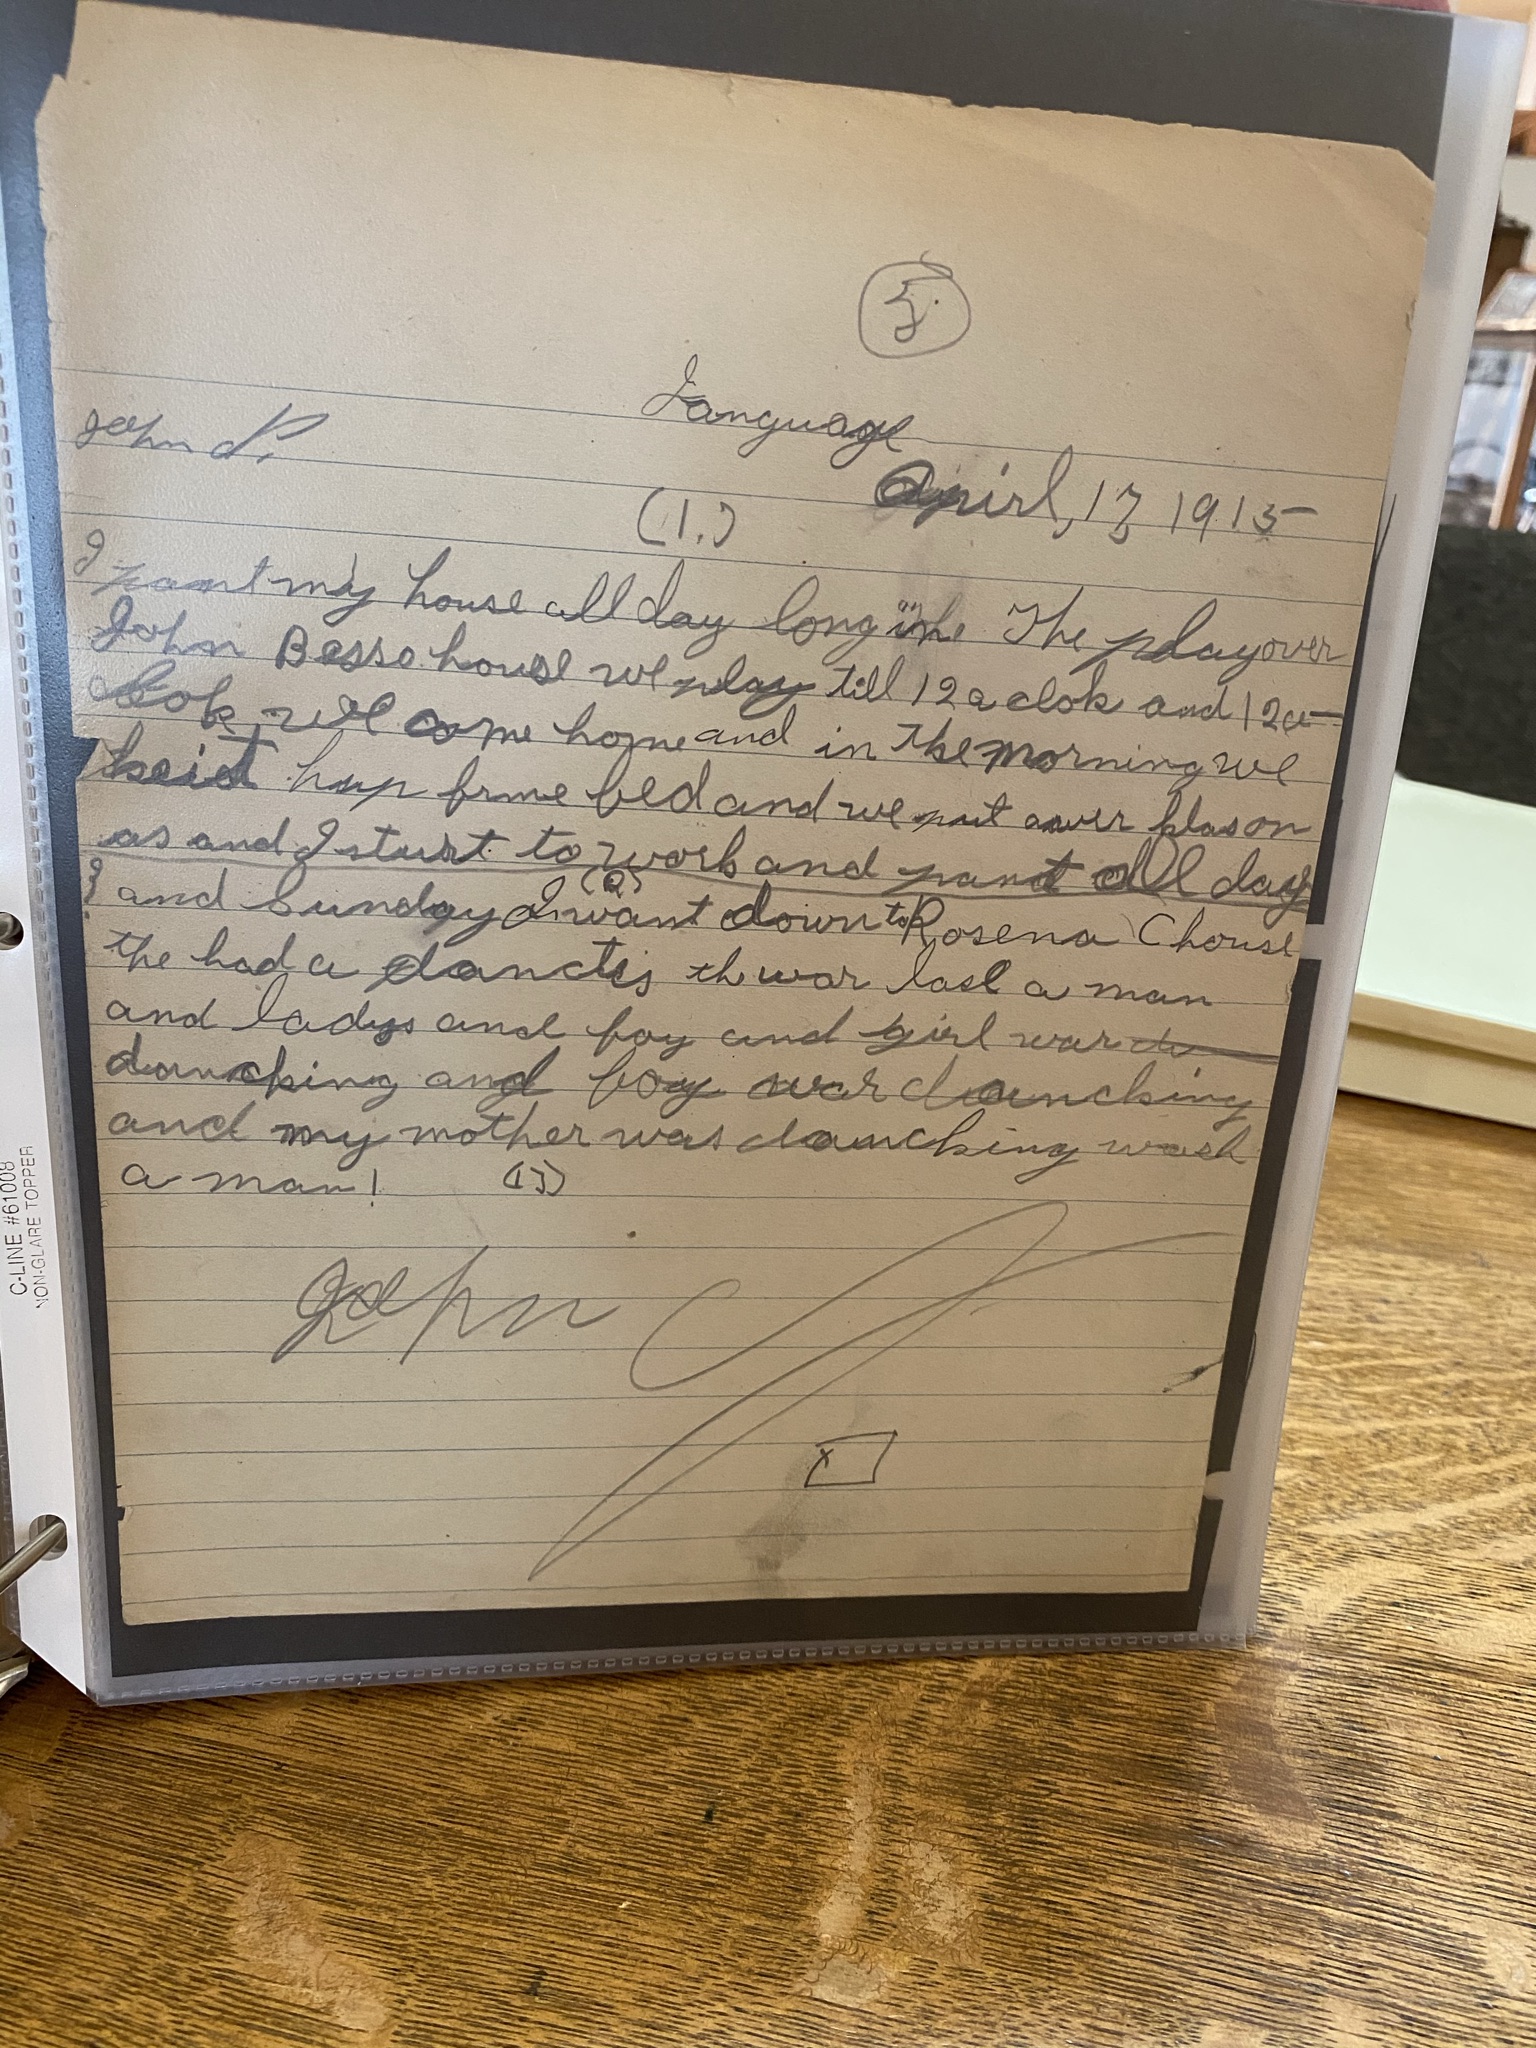 5.
Language
John P.
Apirl, 13 1915
(1.)
I pant my house all day long in the The play over
John Besso house we play till 12 a clok and 12 a
clok we come home and in the morning we
hup frme bed and we put awer klason
as and I sturt to work and pant all day
(2)
and Sunday I want down to Rosena C house
the had a danctis th war last a man
and ladys and boy and girl war
dancking and boy war danching
and my mother was danching
a man!
John
x
C-LINE #61009
NON-GLARE TOPPER